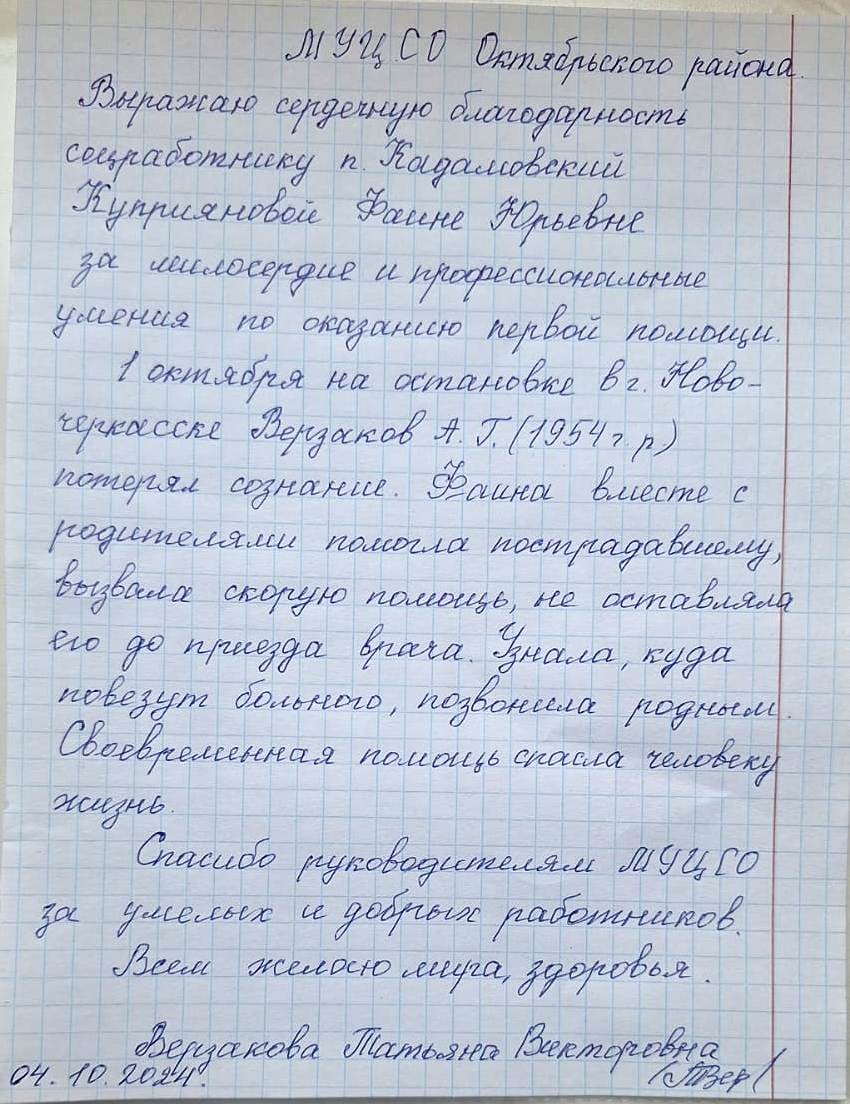 МУЦСО Октябрьского района.
Выражаю сердечную благодарность
соцработнику п. Кадамовский
Куприяновой Фаине Юрьевне
за милосердие и профессиональные
умения по оказанию первой помощи.
1 октября на остановке в г. Ново-
черкасске Верзаков А. Г. (1954 г. р)
потерял сознание. Фаина вместе с
родителями помогла пострадавшему,
вызвала скорую помощь, не оставляла
его до приезда врача. Узнала, куда
повезут больного, позвонила родным.
Своевременная помощь спасла человеку
жизнь.
Спасибо руководителям МУЦСО
за умелых и добрых работников.
Всем желаю мира, здоровья.
Верзакова Татьяна Викторовна
04.10.2024. /ТВер/